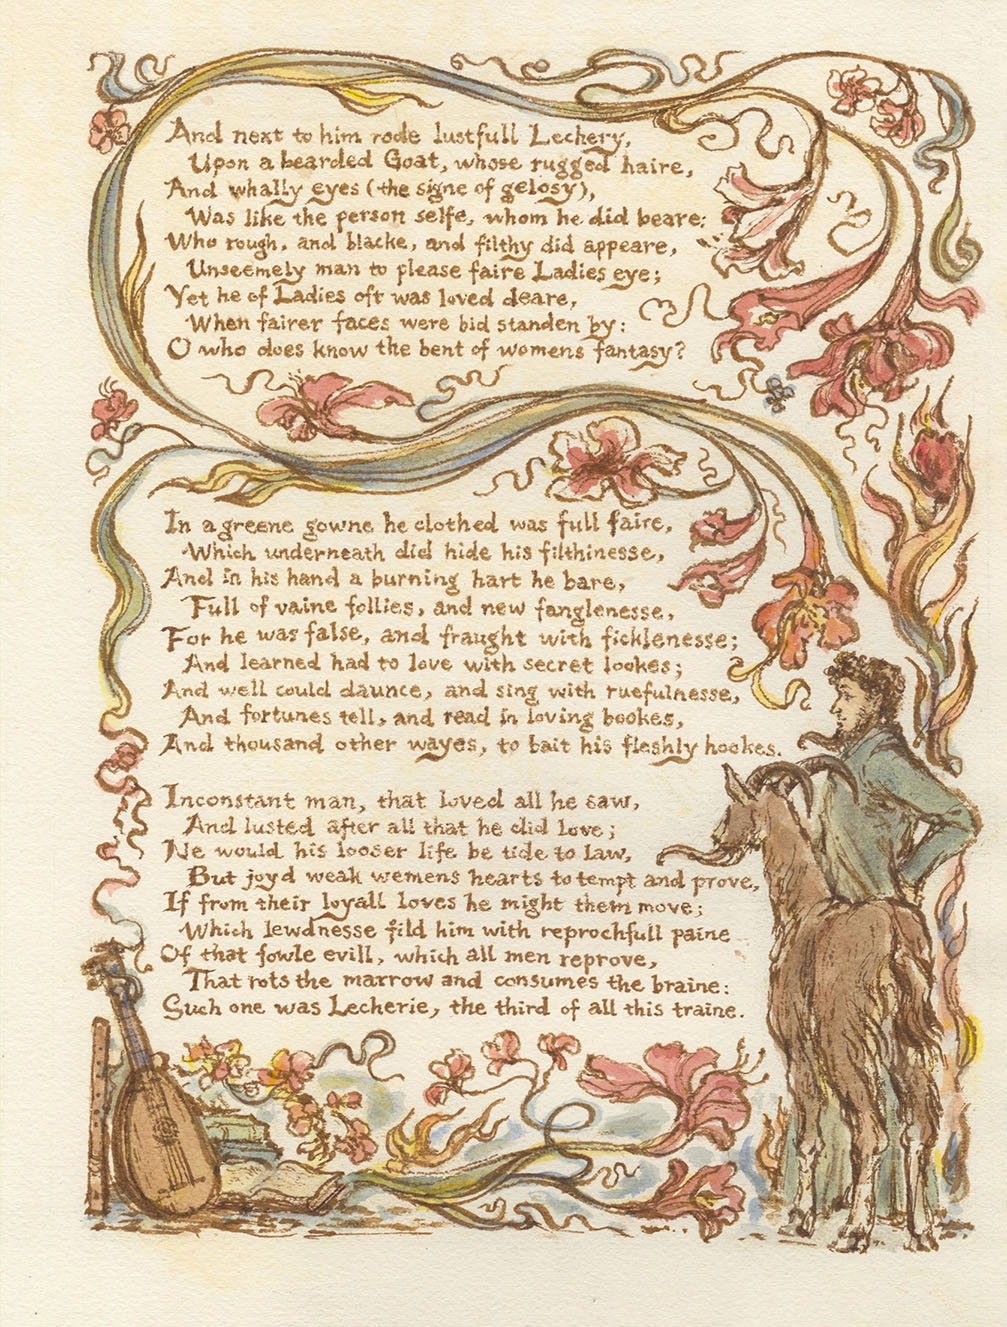 And next to him rode lustfull Lechery,
Upon a bearded Goat, whose rugged haire,
And whally eyes (the signe of gelosy),
Was like the person selfe, whom he did beare:
Who rough, and blacke, and filthy did appeare,
Unseemely man to please faire Ladies eye;
Yet he of Ladies oft was loved deare,
When fairer faces were bid standen by:
O who does know the bent of womens fantasy?
In a greene gowne he clothed was full faire,
Which underneath did hide his filthinesse,
And in his hand a burning hart he bare,
Full of vaine follies, and new fanglenesse,
For he was false, and fraught with ficklenesse;
And learned had to love with secret lookes;
And well could daunce, and sing with ruefulnesse,
And fortunes tell, and read in loving bookes,
And thousand other wayes, to bait his fleshly hookes.
Inconstant man, that loved all he saw,
And lusted after all that he did love;
Ne would his looser life be tide to law,
But joyd weak wemens hearts to tempt and prove,
If from their loyall loves he might them move;
Which lewdnesse fild him with reprochfull paine
Of that fowle evill, which all men reprove,
That rots the marrow and consumes the braine:
Such one was Lecherie, the third of all this traine.